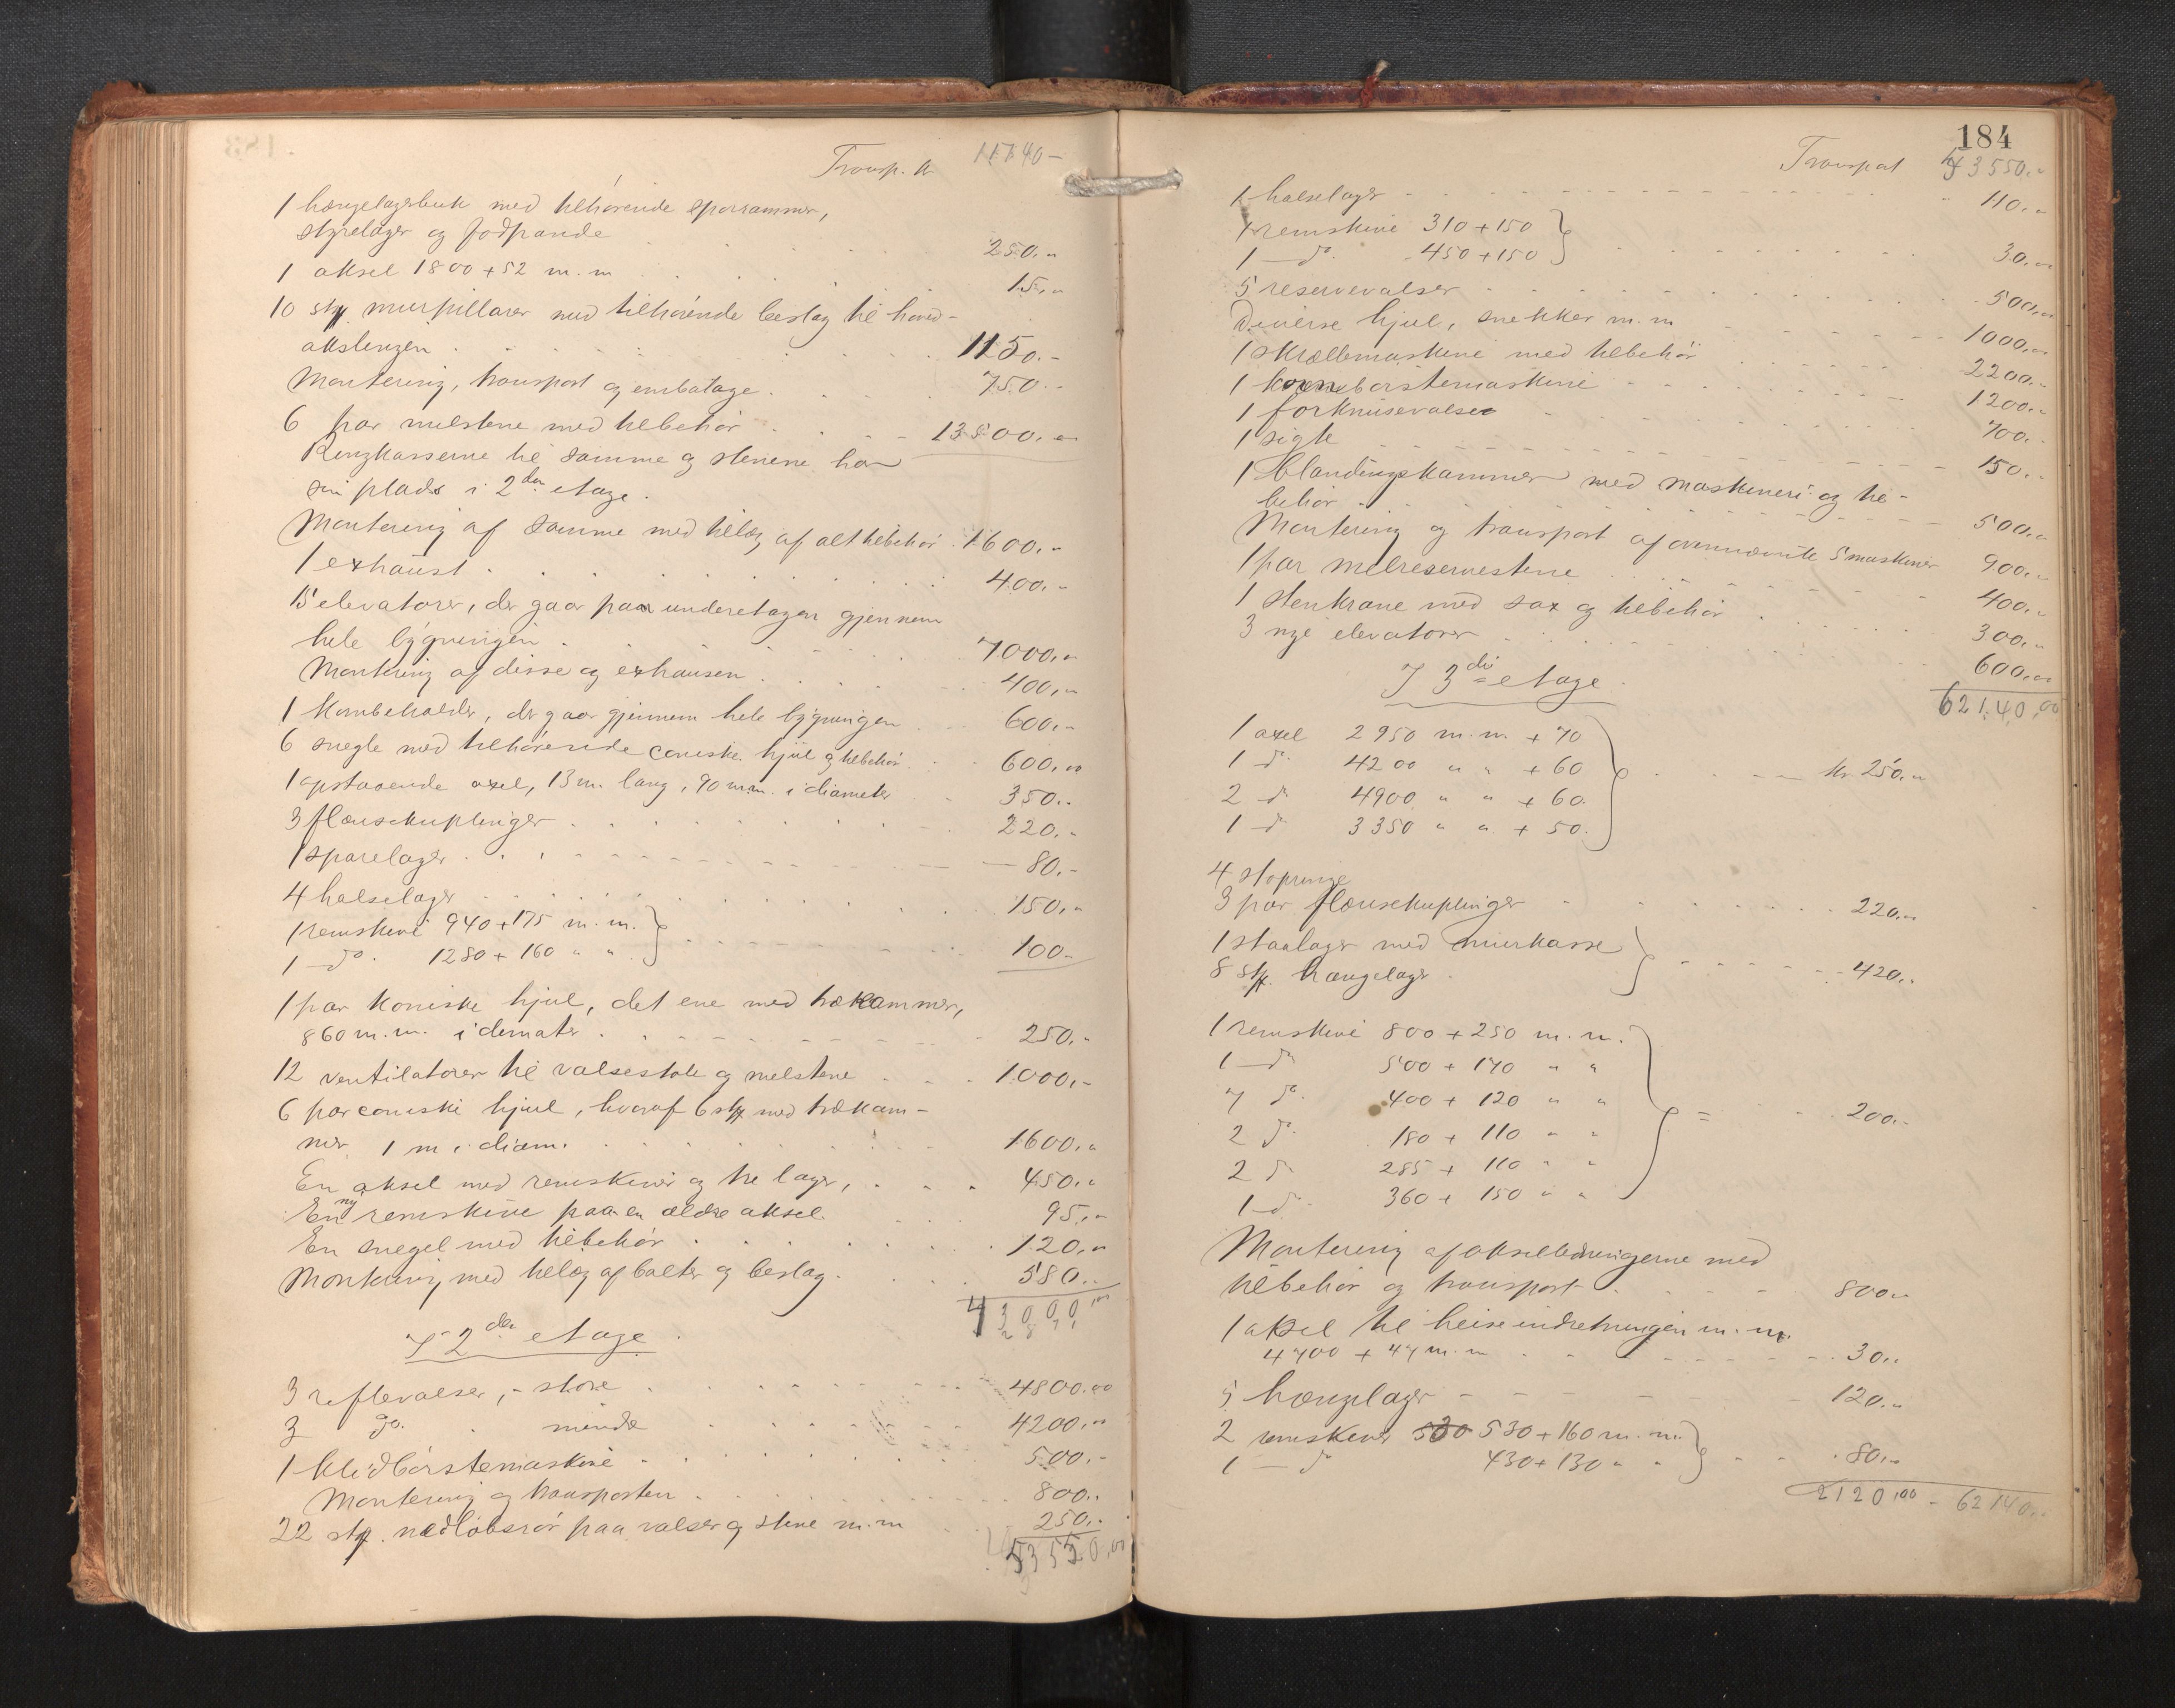 Transp. kr 11740 –
1 hængelagerbuk med tilhørende sporrammer,
styrelager og fodpande . . . 250. „
1 aksel 1800 + 52 m.m . . . 15. „
10 stk. murpillarer med tilhørende beslag til hoved-
akslingen . . . 1150. -
Montering, transport og emballage . . . 750. -
6 par mølstene med tilbehør . . . 13500. „
Ringkasserne til samme og stenene har
sin plads i 2den etage.
Montering af samme med tillæg af alt tilbehør . 1600. -
1 exhaust . . . 400. -
15 elevatorer, der gaar paa underetagen gjennem
hele bygningen . . . 7000. „
Montering af disse og exhausen . . . 400. „
1 Kornbeholder, der gaar gjennem hele bygningen . . 600. -
6 snegle med tilhørende coniske hjul og tilbehør . . 600. „
1 opstaaende axel, 13 m. lang, 90 m.m. i diameter . 350. -
3 flanschkuplinger . . . 220. -
1 sporelager . . . 80. -
4 halselager . . . 150. „
1 remskive 940 + 175 m. m.
1 – do. 1280 + 160 „ „ . . . 100 -
1 par koniske hjul, det ene med trækammer,
860 m.m. i diameter . . . 250. -
12 ventilatorer til valsestole og mølstene . . . 1000. -
6 par coniske hjul, hvoraf 6 stk med trækam-
mer 1 m i diam. . . . 1600. „
En aksel med remskiver og tre lager, . . . 450. „
En ny remskive paa en ældre aksel . . . 95. -
En snegel med tilbehør . . . 120. „
Montering med tillæg af bolter og beslag . . . 580. -
43000,00
I 2den etage.
3 riflevalser, - store . . . 4800.00
3 do. mindre . . . 4200. „
1 Klidbørstemaskine . . . 500. -
Montering og transporten . . . 800. -
22 stk. nedløbsrør paa valser og stene m.m . . . 250. -
53550,00
184
Transport 53550. -
1 halselager . . . 110. -
1 remskive 310 + 150
1 – do. 450 + 150 . . . 30. „
5 reservevalser . . . 500. „
Diverse hjul, snekker m.m . . . 1000. „
1 skrællemaskine med tilbehør . . . 2200. -
1 kornbørstemaskine . . . 1200. -
1 forknusevalse . . . 700. -
1 sigte . . . 150. -
1 Blandingskammer med maskineri og til-
behør . . . 500. „
Montering og transport af ovennævnte 5 maskiner 900. „
1 par mølreservestene . . . 400. „
1 Stenkrane med sax og tilbehør . . . 300. „
3 nye elevatorer . . . 600. „
62140,00
I 3die etage.
1 axel 2950 m.m. + 70
1 do. 4200 „ „ + 60
2 do 4900 „ „ + 60.
1 do 3350 „ „ + 50. . . . kr 250. „
4 stopringe
3 par flanschkuplinger . . . 220. „
1 staalager med murkasse
8 stk. hængelager . . . . 420. -
1 remskive 800 + 250 m. m.
1 – do 500 + 140 „ „
7 do. 400 + 120 „ „
2 do. 180 + 110 „ „
2 do 285 + 110 „ „
1 – do 360 + 150 „ „ = . . . 200. -
Montering af akselledningerne med
tilbehør og transport . . . 800. „
1 aksel til heiseindretningen m. m.
4700 + 47 m.m . . . 30. „
5 hængelager . . . 120. „
2 remskiver 500 530 + 160 m.m.
1 – do 430 + 130 „ „ . . . 80. „
2120,00 – 62140. „